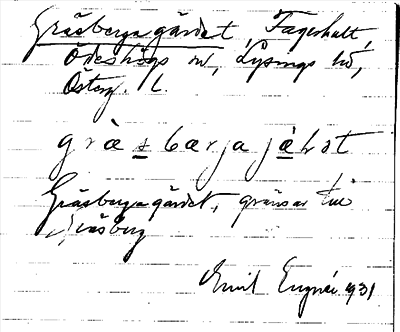 Gräsbergagärdet, Fagerhult,
Ödeshögs sn, Lysings hd,
Österg. l.
gräsbærja jæ̀ḷṣt
Gräsbergagärdet, gränsar till
Gräsberg
Emil Engnér 1931